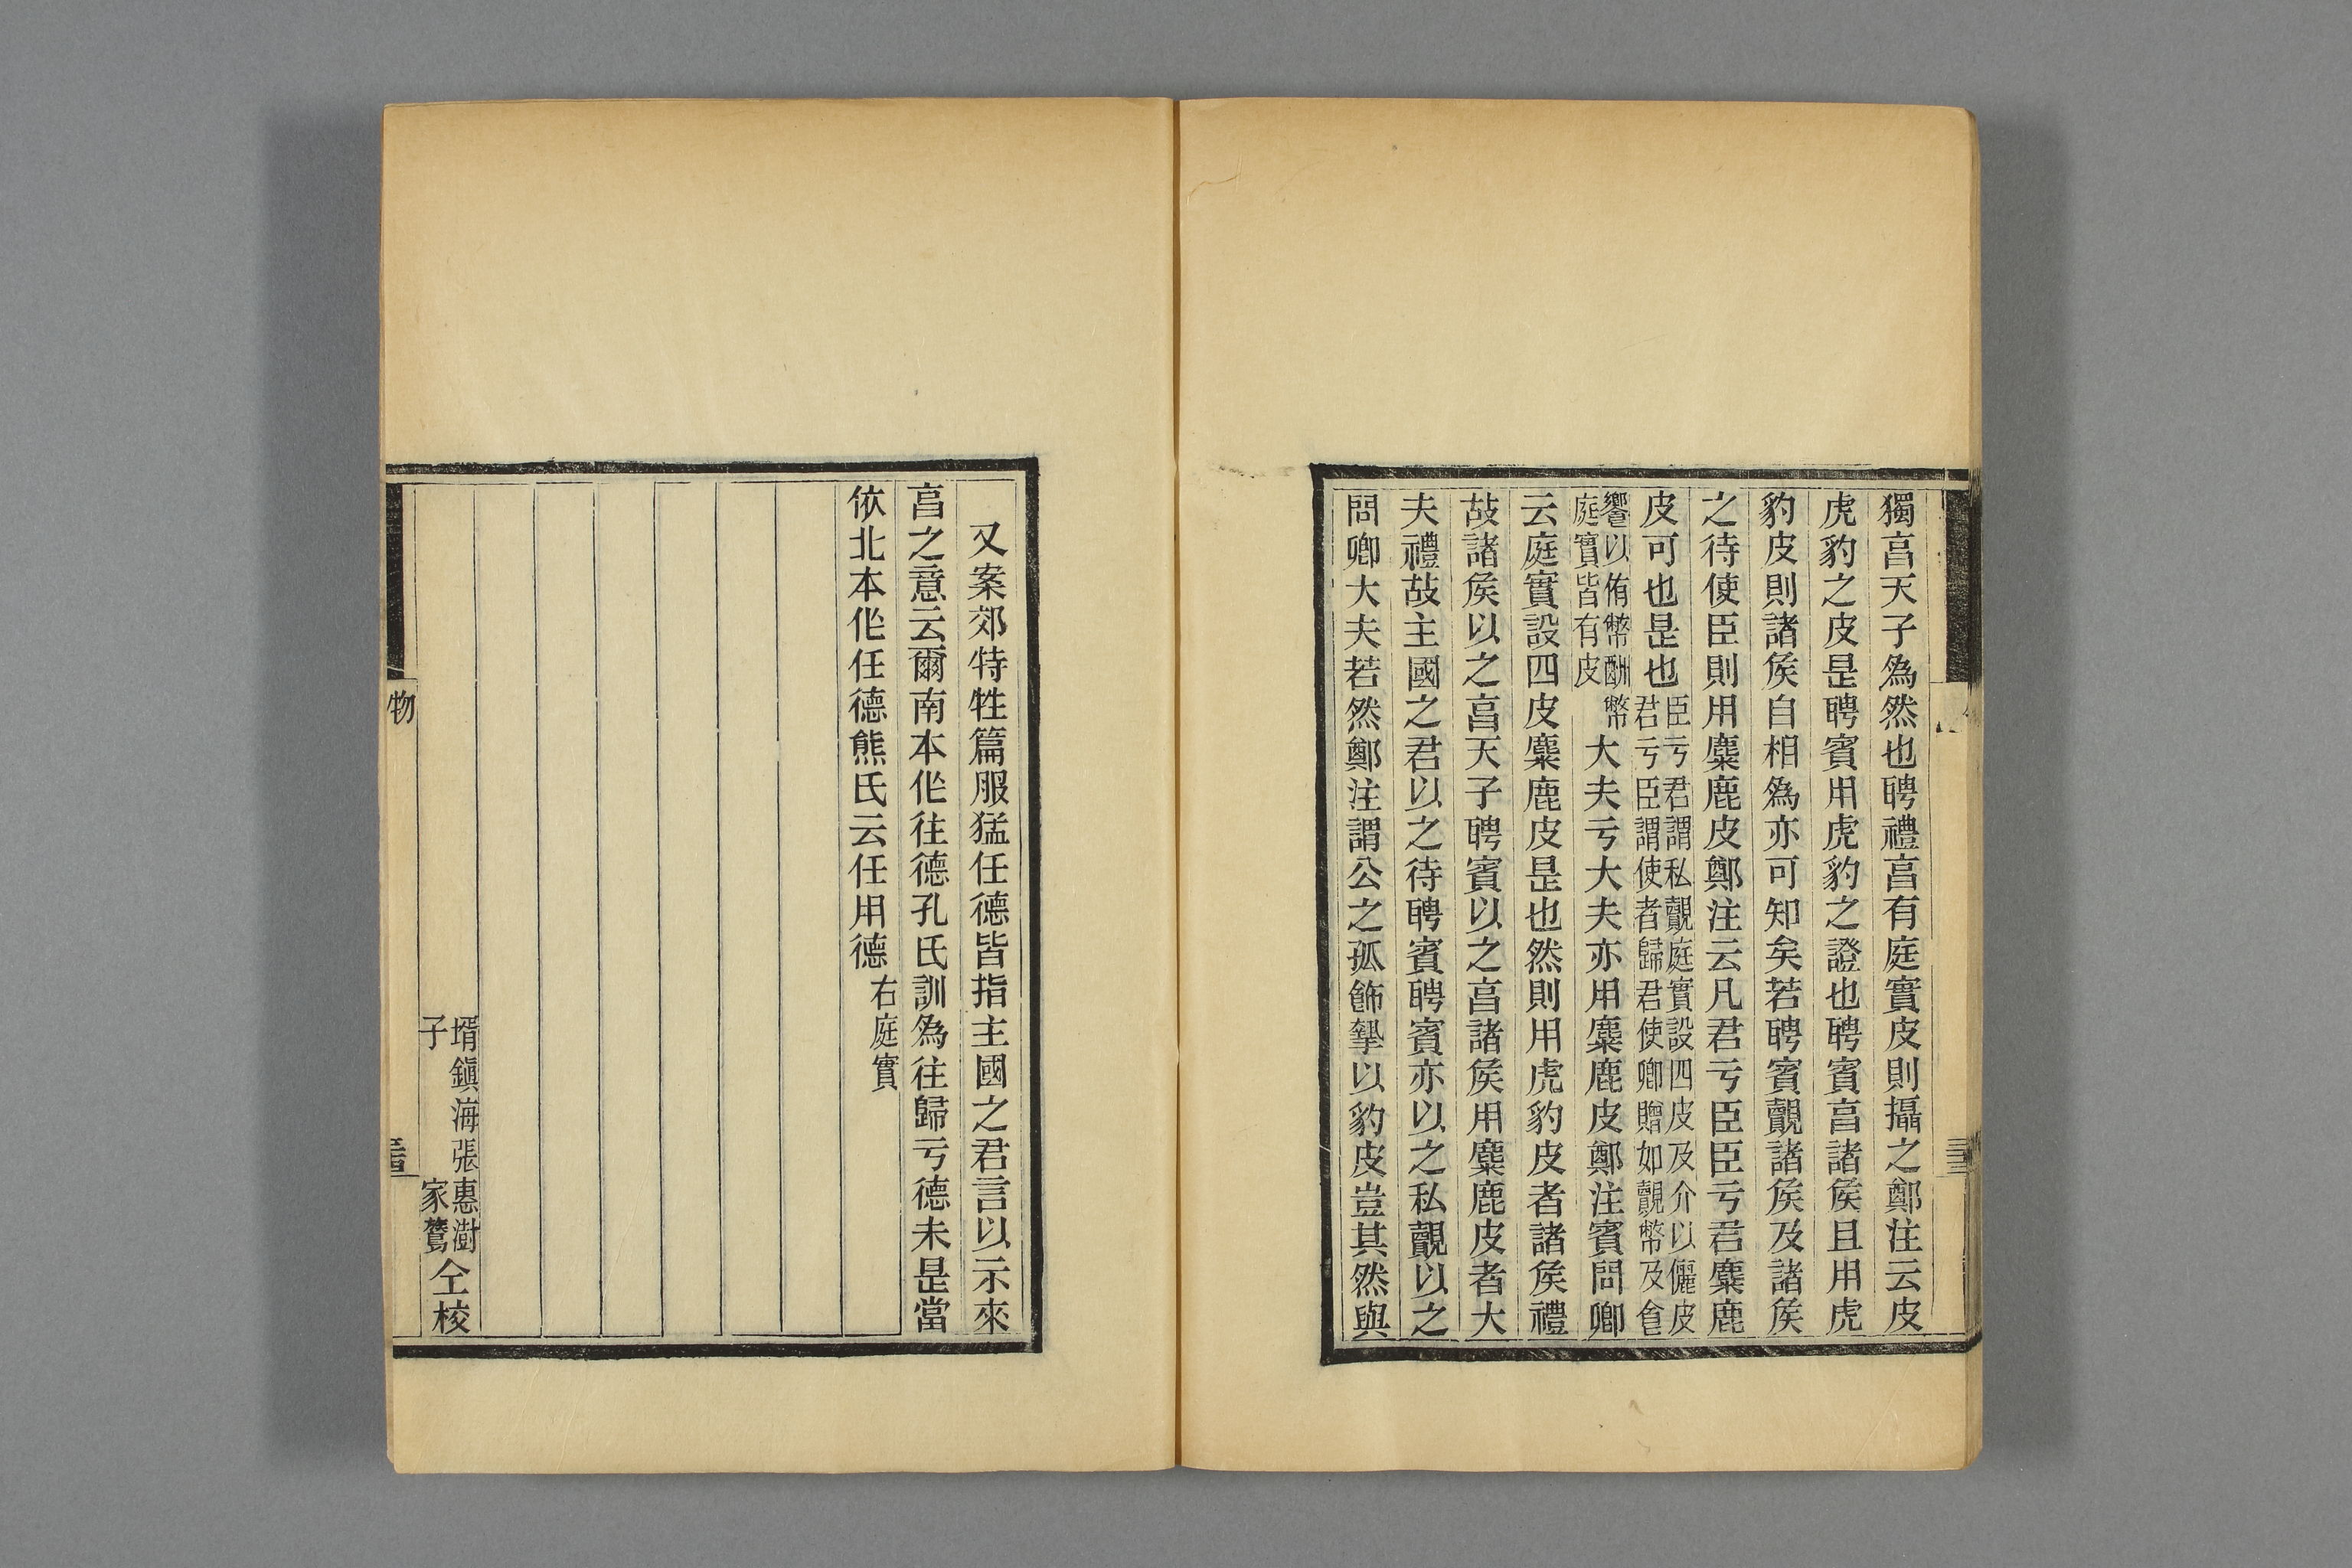 獨亯天子爲然也聘禮亯有庭實皮則攝之鄭注云皮
虎豹之皮是聘賓用虎豹之證也聘賓亯諸矦且用虎
豹皮則諸矦自相爲亦可知矣若聘賓覿諸矦及諸矦
之待使臣則用麋鹿皮鄭注云凡君亏臣臣亏君麋鹿
皮可也是也臣亏君謂私覿庭實設四皮及介以儷皮
君亏臣謂使者歸君使卿贈如覿幣及食
饗以侑幣酬幣
庭實皆有皮
大夫亏大夫亦用麋鹿皮鄭注賓問卿
云庭實設四皮麋鹿皮是也然則用虎豹皮者諸矦禮
故諸矦以之亯天子聘賓以之亯諸矦用麋鹿皮者大
夫禮故主國之君以之待聘賓聘賓亦以之私覿以之
問卿大夫若然鄭注謂公之孤飾摯以豹皮豈其然與
又案郊特牲篇服猛任德皆指主國之君言以示來
亯之意云爾南本作往德孔氏訓爲往歸亏德未是當
依北本作任德熊氏云任用德 右庭實
壻鎮海張惠澍
子家鷟
仝校
物